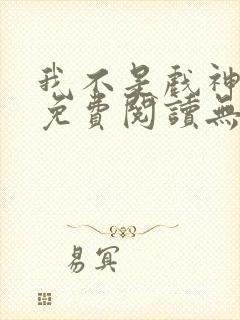 我不是戲神
免費閱讀無
易冥